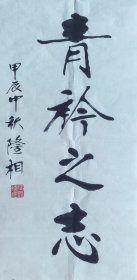 青衿之志
甲辰中秋隆相